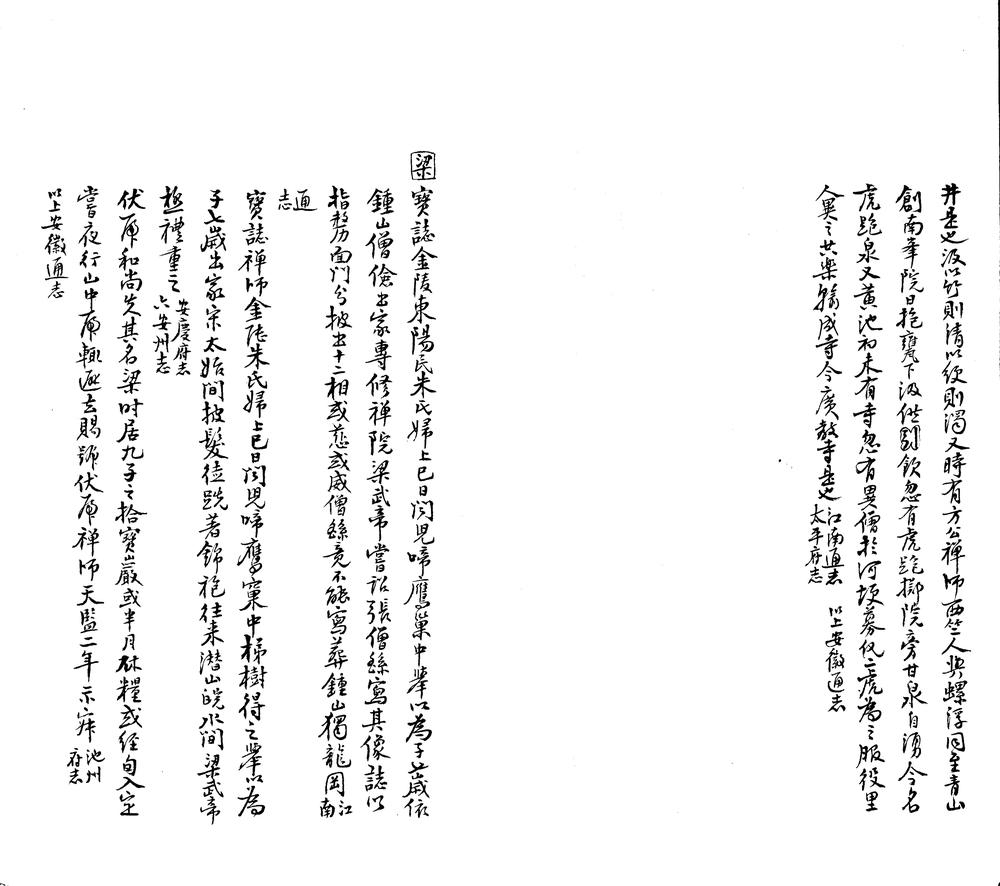 井是也汲以竹則清以綆則濁又時有方公禪師西竺人與螺浮同至青山
創南峯院日抱甕下汲供飲忽有虎跑擲院旁甘泉自湧今名
虎跑泉又黃池初未有寺忽有異僧於河埂募化二虎為之服役里
人異之共樂輸成寺今廣教寺是也 江南通志 太平府志 以上安徽通志
梁 寶誌金陵東陽民朱氏婦上巳日聞兒啼鷹巢中舉以為子七歲依
鍾山僧儉出家專修禪院梁武帝嘗詔張僧繇寫其像誌以
指剺面門分披出十二相或慈或威僧繇竟不能寫葬鍾山獨龍岡 江南
通志
寶誌禪師金陵朱氏婦上巳日聞兒啼鷹窠中梯樹得之舉以為
子七歲出家宋太始間披髮徒跣著錦袍往來潛山皖水間梁武帝
極禮重之 安慶府志 六安州志
伏虎和尚失其名梁時居九子之拾寶巖或半月休糧或經旬入定
嘗夜行山中虎輒避去賜號伏虎禪師天監二年示寂 池州府志
以上安徽通志